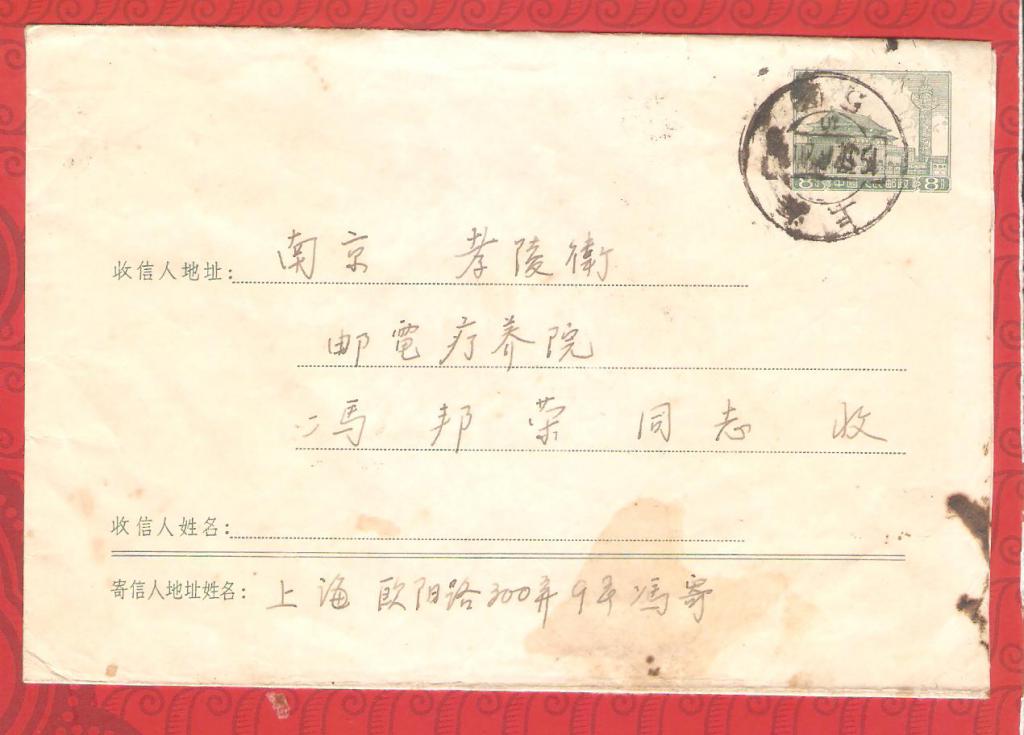 8 中国人民邮政 8
上海
收信人地址: 南京 孝陵衛
邮電疗养院
冯邦荣同志 收
收信人姓名:
寄信人地址姓名: 上海欧阳路300弄9号冯寄